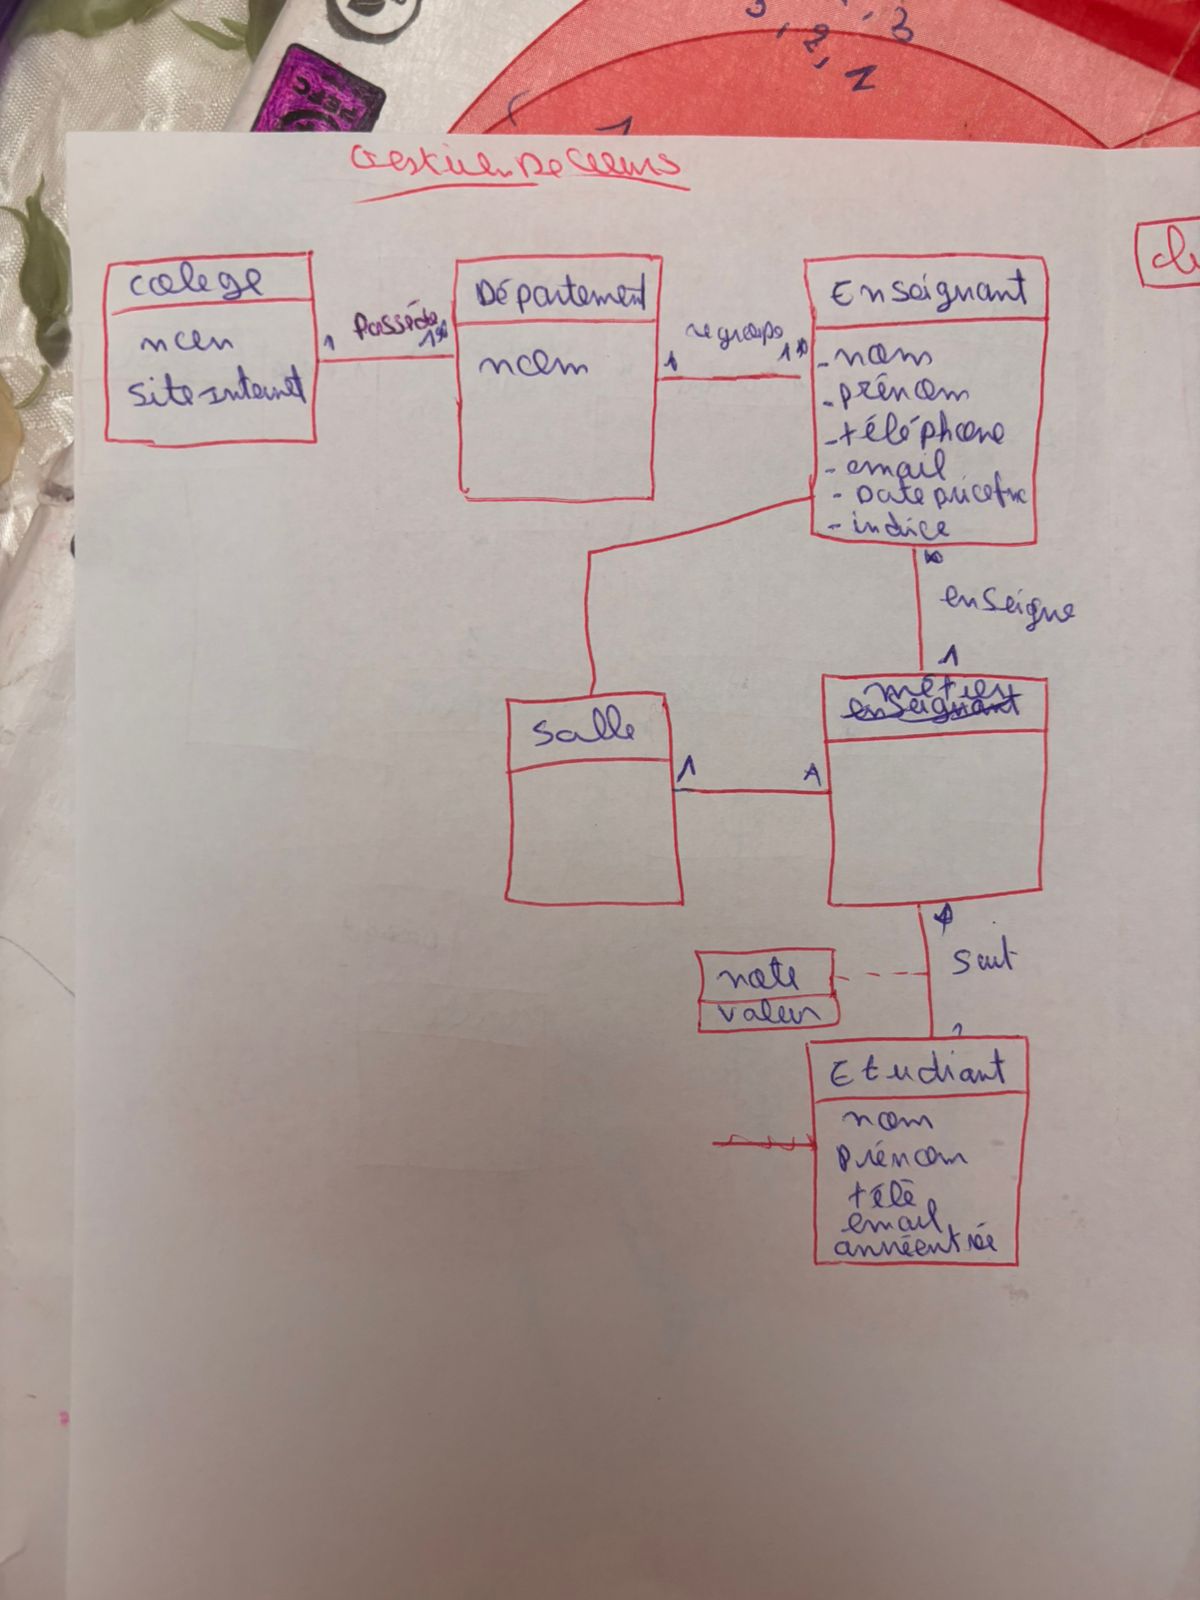 3
2,
1
PEFC
Gestion De Cours
colege
nom
site internet
1 Possède 1*
Département
nom
1 regroupe 1*
Enseignant
- nom
- prénom
- téléphone
- email
- indice
*
enseigne
1
métier
enseignant
Salle
1
1
suit
note
valeur
Etudiant
nom
prénom
télé
email
annéentrée